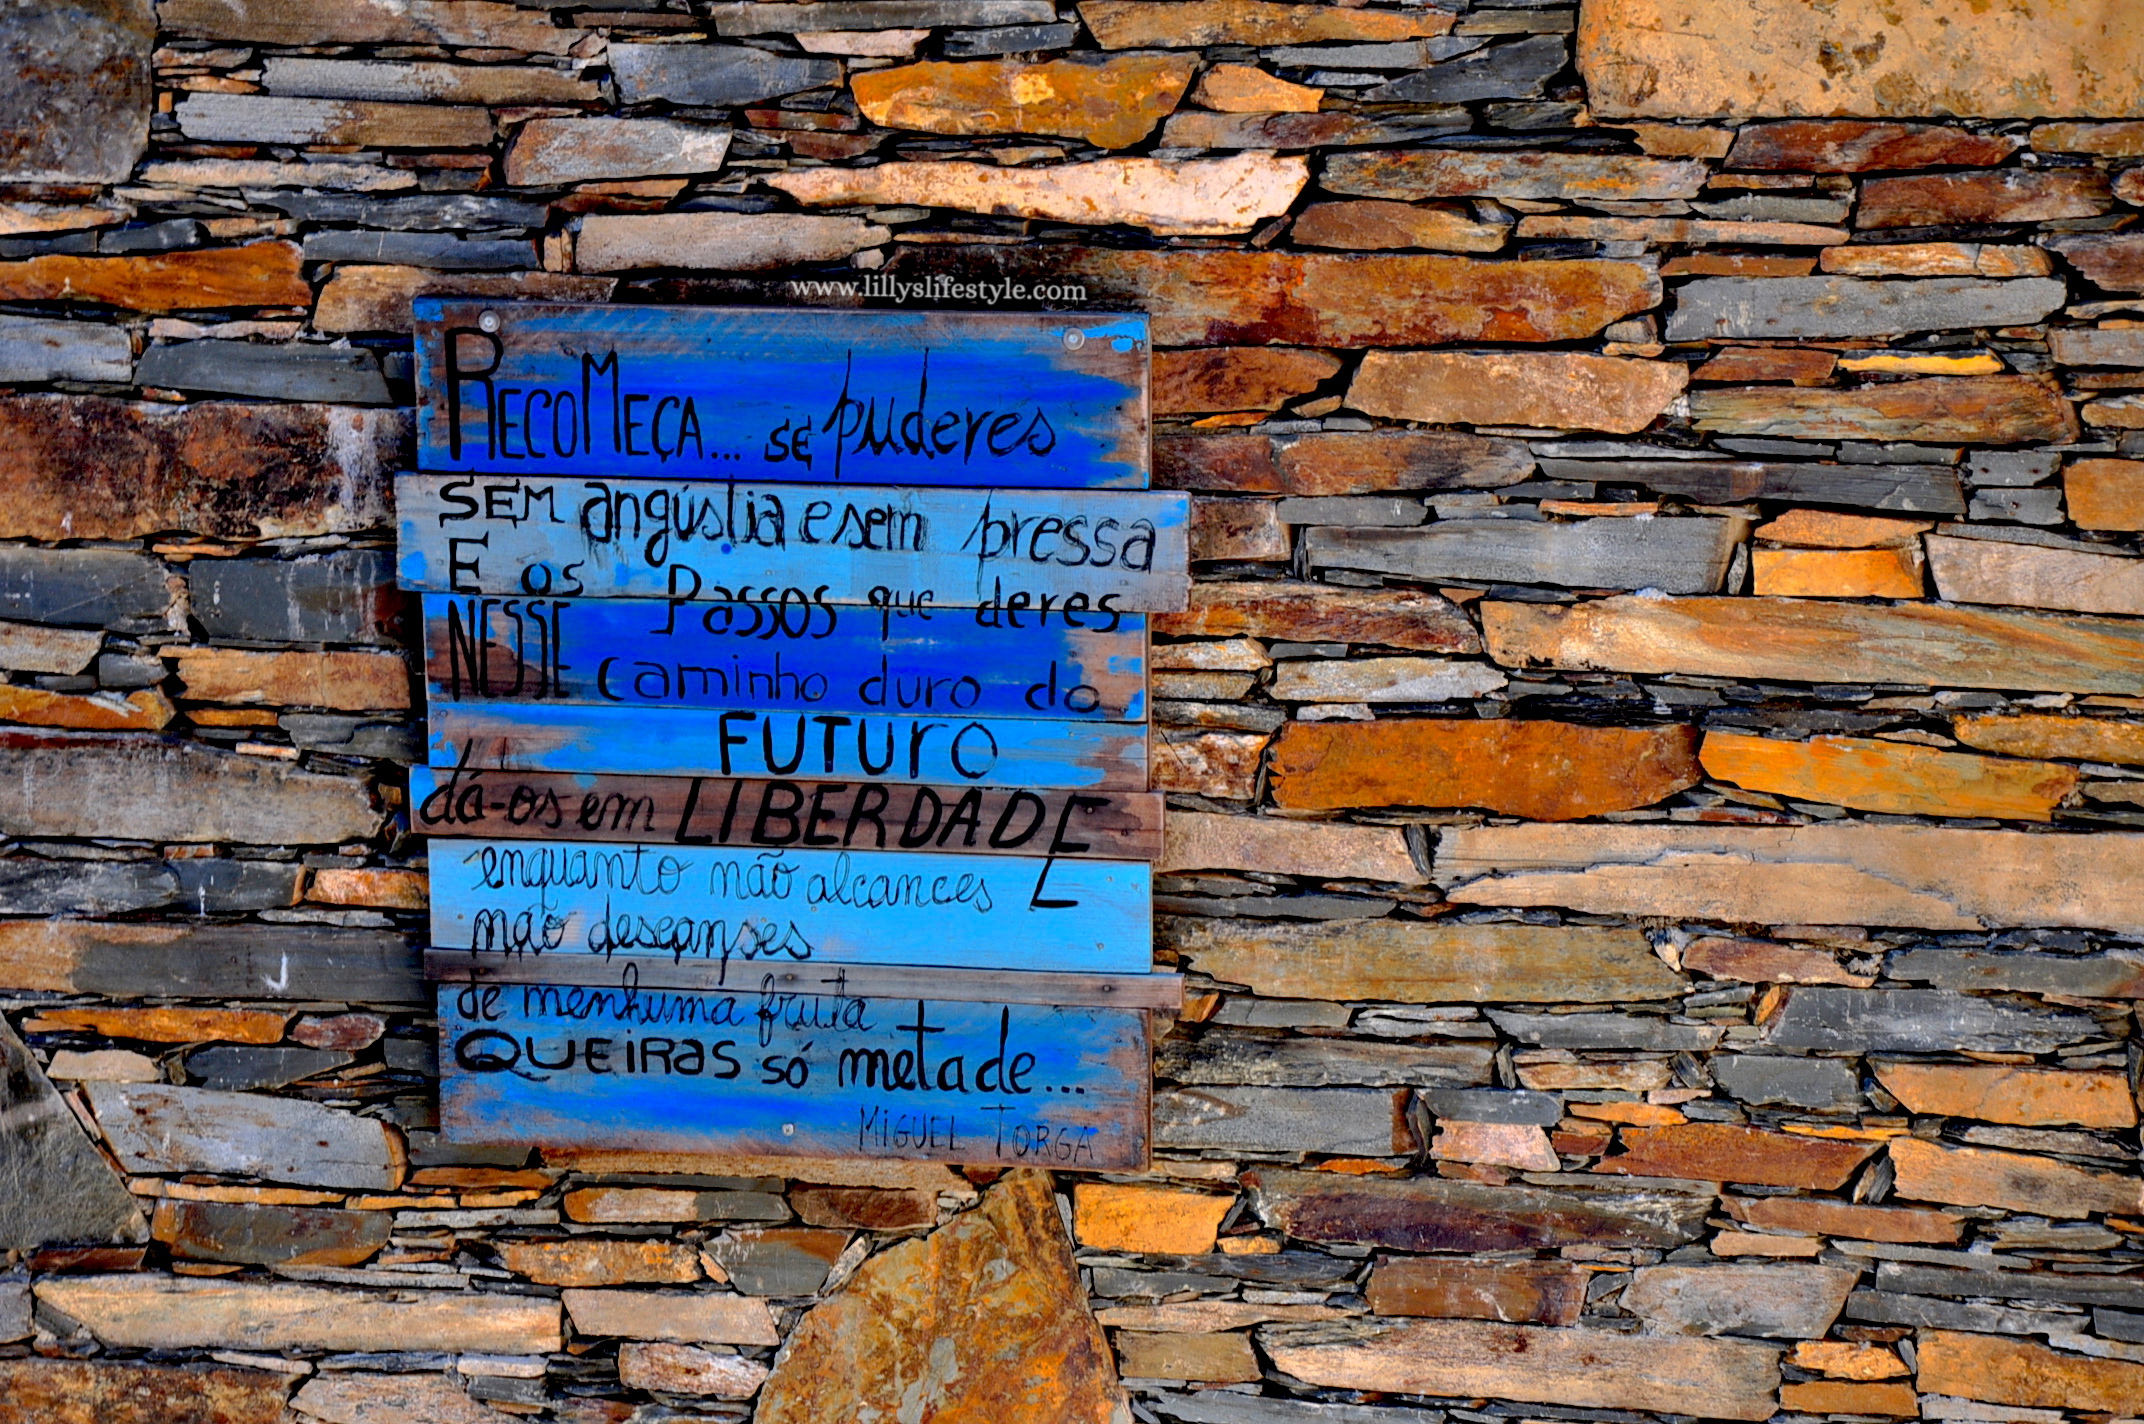 www.lillyslifestyle.com
RECOMEÇA... SE puderes
SEM angústia e sem pressa
E os Passos que deres
NESSE caminho duro do
FUTUrO
dá-os em LIBERDADE
enquanto não alcances
não descanses
de nenhuma fruta
QUEIRAS só metade...
MIGUEL TORGA